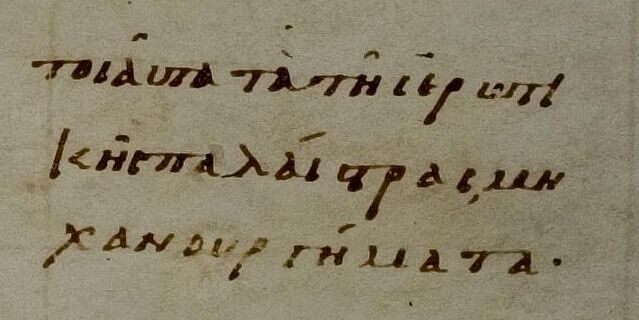 τοιαῦτα τὰ τῆς ἐρωτι
κῆς παλαίστρας μη
χανουργήματα·